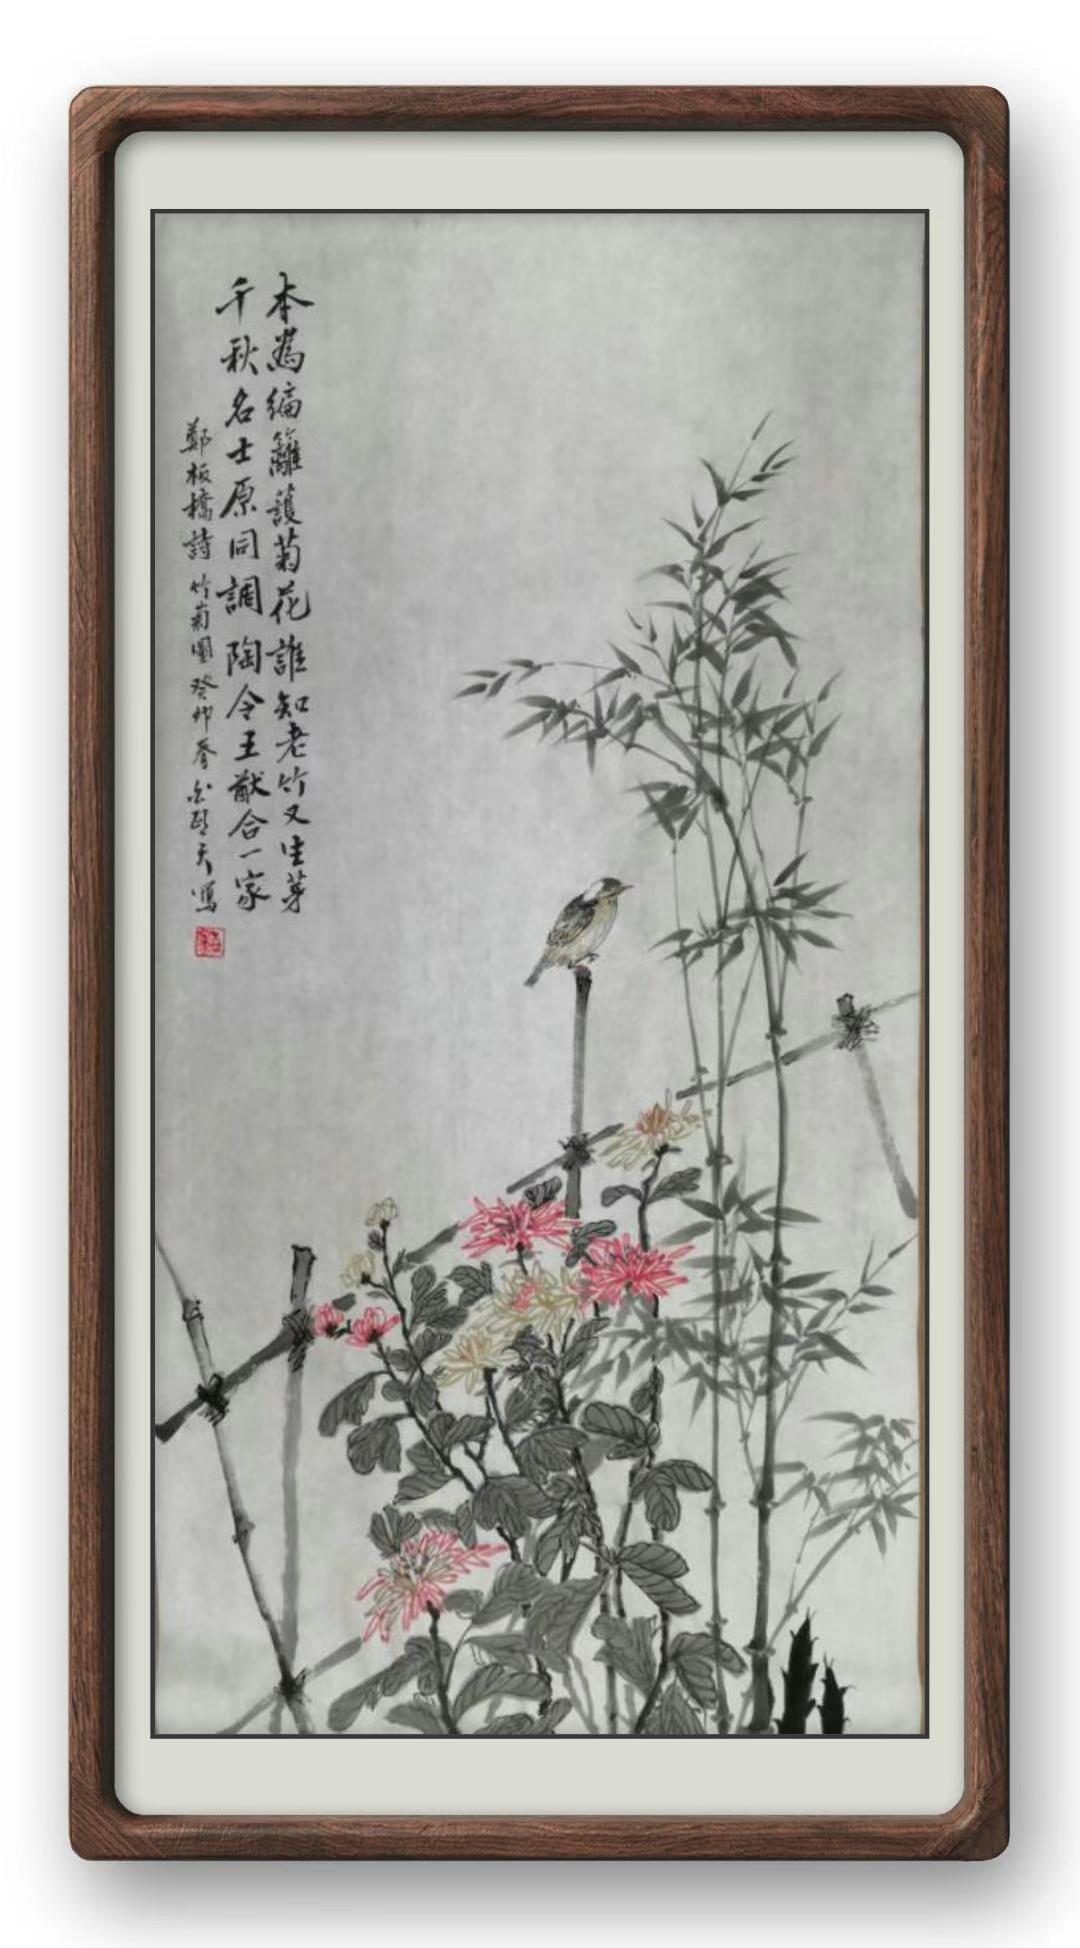 本為编籬護菊花誰知老竹又生芽
千秋名士原同調陶令王猷合一家
鄭板橋詩竹菊圖癸卯春天寫